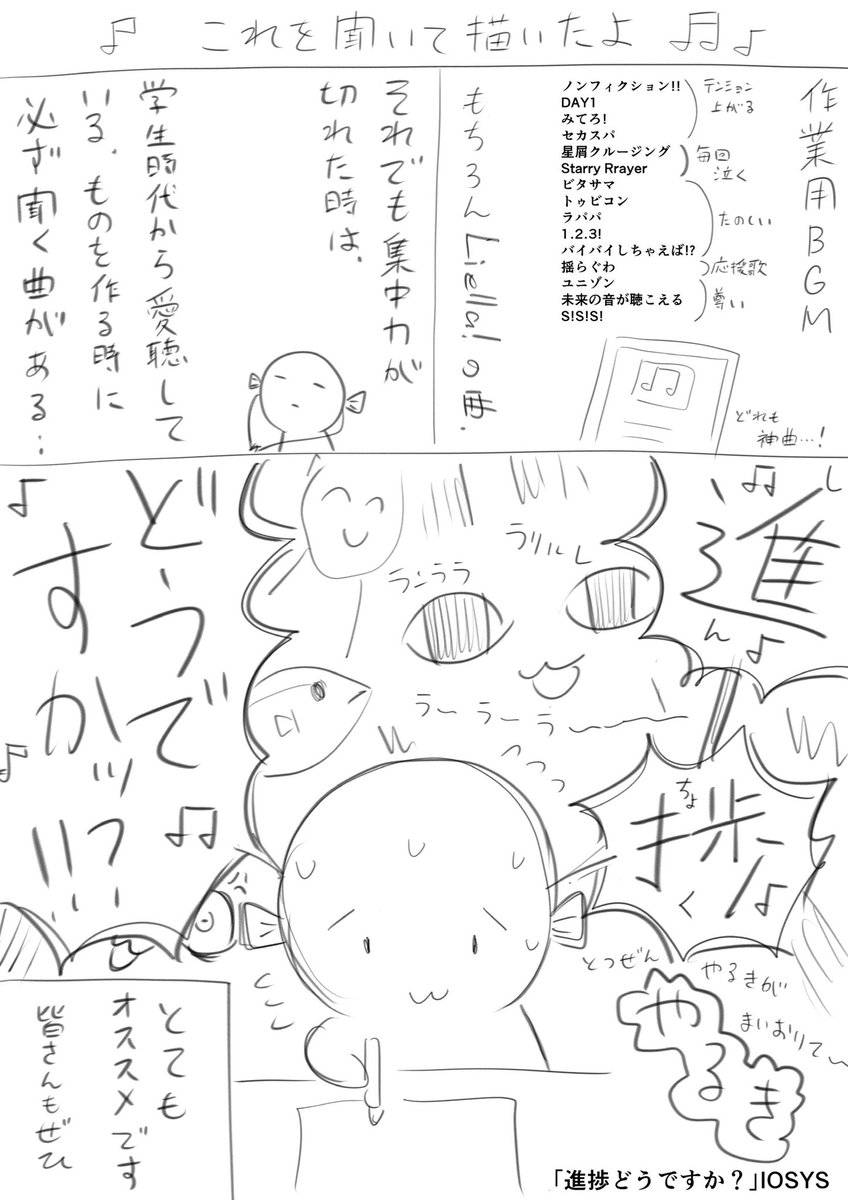 ♪ これを聞いて描いたよ ♫♪
作業用BGM
ノンフィクション!!
DAY1
みてろ!
セカスパ
テンション
上がる
星屑クルージング
Starry Rrayer
毎回
泣く
ビタサマ
トゥビコン
ラパパ
1.2.3!
バイバイしちゃえば!?
たのしい
揺らぐわ
応援歌
ユニゾン
未来の音が聴こえる
S!S!S!
尊い
もちろんLiella!の曲.
どれも
神曲…!
それでも集中力が
切れた時は、
学生時代から愛聴して
いる、ものを作る時に
必ず聞く曲がある…
進
しん
捗
ちょく
どうで
すかッ?!!
ラリルレ
ランララ
ラーラーラー〜
とつぜん
やるきが
まいおりて〜
やるき
とても
オススメです
皆さんもぜひ
「進捗どうですか？」IOSYS